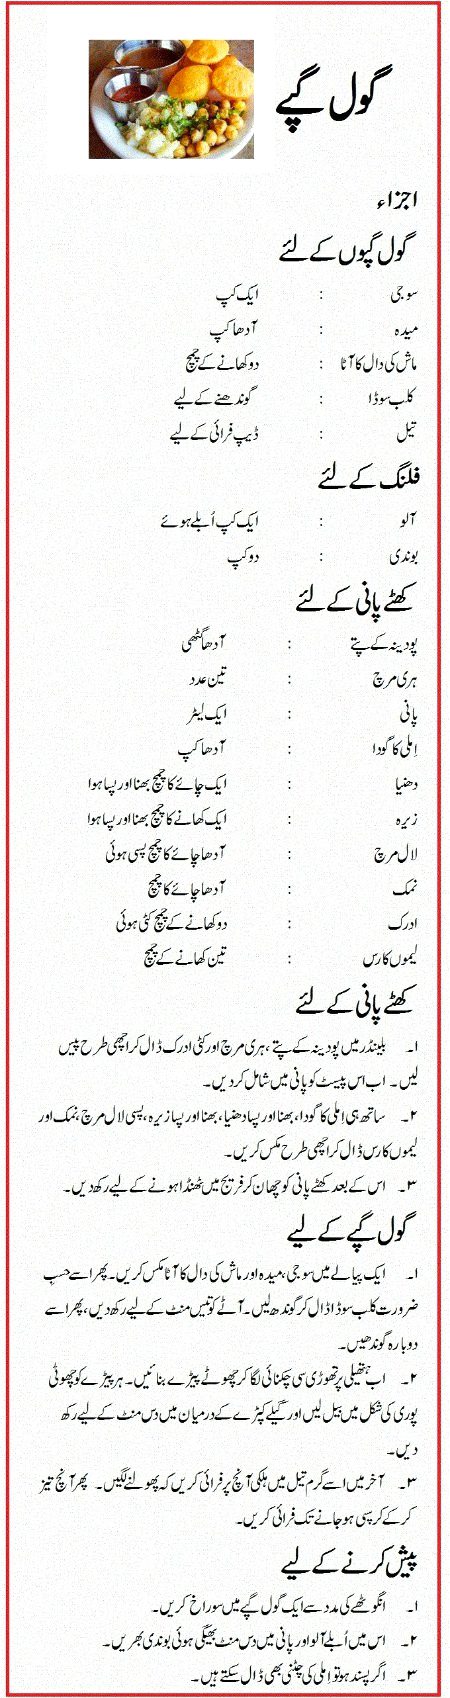 گول گپّے
اجزاء
گول گپّوں کے لئے
سوجی : ایک کپ
میدہ : آدھا کپ
ماش کی دال کا آٹا : دو کھانے کے چمچ
کلب سوڈا : گوندھنے کے لیے
تیل : ڈیپ فرائی کے لیے
فلنگ کے لئے
آلو : ایک کپ اُبلے ہوئے
بوندی : دو کپ
کھٹے پانی کے لئے
پودینہ کے پتے : آدھا گٹھی
ہری مرچ : تین عدد
پانی : ایک لیٹر
اِملی کا گودا : آدھا کپ
دھنیا : ایک چائے کا چمچ بھنا اور پسا ہوا
زیرہ : ایک کھانے کا چمچ بھنا اور پسا ہوا
لال مرچ : آدھا چائے کا چمچ پسی ہوئی
نمک : آدھا چائے کا چمچ
ادرک : دو کھانے کے چمچ کٹی ہوئی
لیموں کا رس : تین کھانے کے چمچ
کھٹے پانی کے لئے
۱۔ بلینڈر میں پودینہ کے پتے ،ہری مرچ اور کٹی ادرک ڈال کر اچھی طرح پیس
لیں ۔ اب اس پیسٹ کو پانی میں شامل کر دیں۔
۲۔ ساتھ ہی اِملی کا گودا، بھنا اور پسا دھنیا، بھنا اور پسا زیرہ، پسی لال مرچ ،نمک اور
لیموں کا رس ڈال کر اچھی طرح مکس کریں۔
۳۔ اس کے بعد کھٹے پانی کو چھان کر فریج میں ٹھنڈا ہونے کے لیے رکھ دیں۔
گول گپّے کے لیے
۱۔ ایک پیالے میں سوجی ،میدہ اور ماش کی دال کا آٹا مکس کریں۔ پھر اسے حسبِ
ضرورت کلب سوڈا ڈال کر گوندھ لیں۔ آٹے کو تیس منٹ کے لیے رکھ دیں، پھر اسے
دوبارہ گوندھیں۔
۲۔ اب ہتھیلی پر تھوڑی سی چکنائی لگا کر چھوٹے پیڑے بنائیں۔ ہر پیڑے کو چھوٹی
پوری کی شکل میں بیل لیں اور گیلے کپڑے کے درمیان میں دس منٹ کے لیے رکھ
دیں۔
۳۔ آخر میں اسے گرم تیل میں ہلکی آنچ پر فرائی کریں کہ پھولنے لگیں۔ پھر آنچ تیز
کر کے کرسپی ہو جانے تک فرائی کریں۔
پیش کرنے کے لیے
۱۔ انگوٹھے کی مدد سے ایک گول گپّے میں سوراخ کریں۔
۲۔ اس میں اُبلے آلو اور پانی میں دس منٹ بھیگی ہوئی بوندی بھریں۔
۳۔ اگر پسند ہو تو اِملی کی چٹنی بھی ڈال سکتے ہیں۔